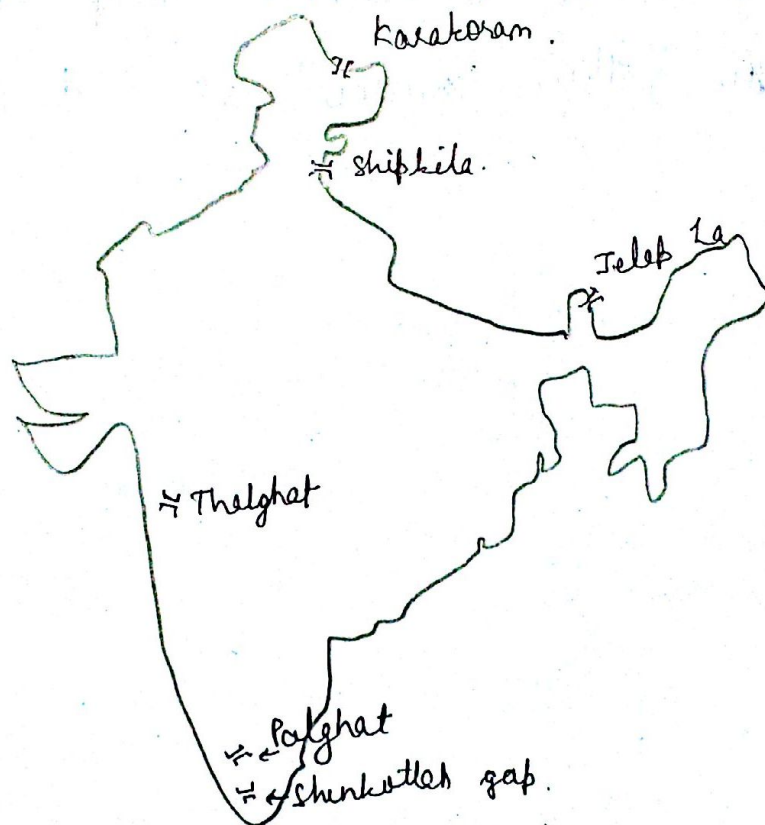 Karakoram.
Shipkila.
Jelep La
Thalghat
Palghat
Shenkottah gap.